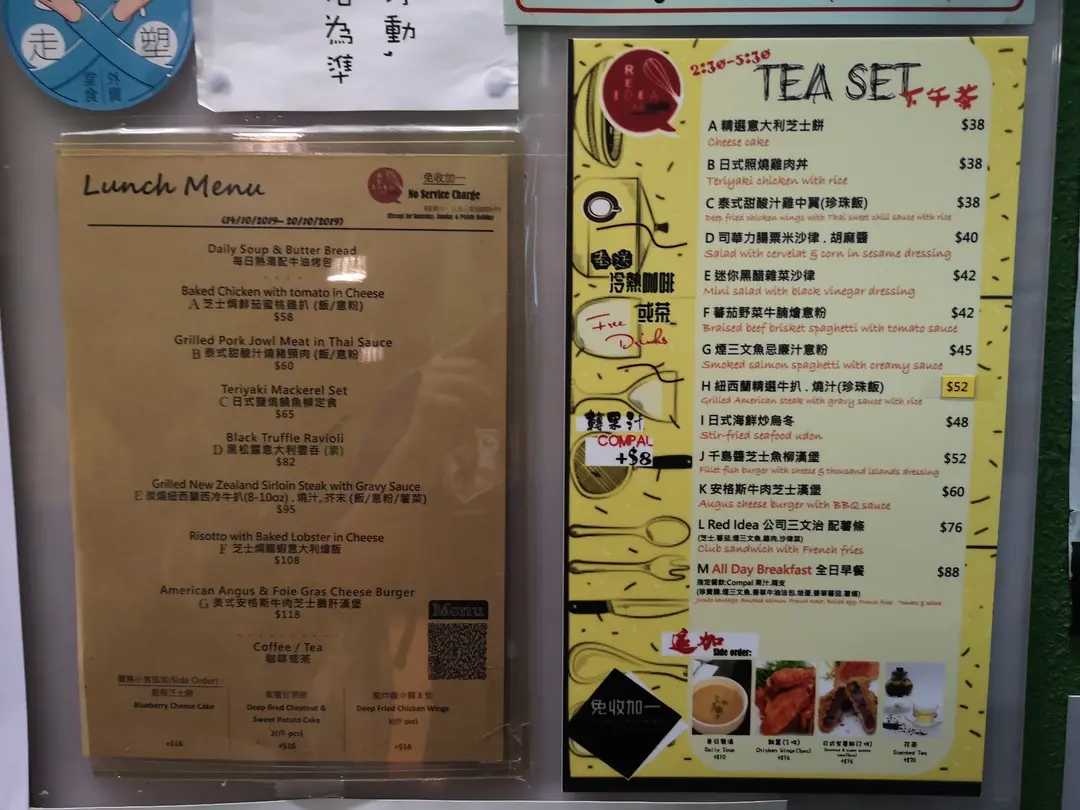 走 塑
為準
動，
Lunch Menu
免收加一
No Service Charge
(Except for Saturday, Sunday & Public Holiday)
(14/10/2019– 20/10/2019)
Daily Soup & Butter Bread
每日熱湯配牛油烤包
Baked Chicken with tomato in Cheese
A 芝士焗鮮茄蜜桃雞扒 (飯/意粉)
$58
Grilled Pork Jowl Meat in Thai Sauce
B 泰式甜酸汁燒豬頸肉 (飯/意粉
$60
Teriyaki Mackerel Set
C 日式鹽燒鯖魚柳定食
$65
Black Truffle Ravioli
D 黑松露意大利雲吞 (素)
$82
Grilled New Zealand Sirloin Steak with Gravy Sauce
E 炭燒紐西蘭西冷牛扒(8-10oz) . 燒汁, 芥末 (飯/意粉/薯菜)
$95
Risotto with Baked Lobster in Cheese
F 芝士焗龍蝦意大利燴飯
$108
American Angus & Foie Gras Cheese Burger
G 美式安格斯牛肉芝士鵝肝漢堡
$118
Coffee / Tea
咖啡或茶
Menu
(Side Order) :
藍莓芝士餅
Blueberry Cheese Cake
+$18
Deep fired Chestnut &
Sweet Potato Cake
+$16
Deep Fried Chicken Wings
+$18
RED IDEA
2:30-5:30
TEA SET
下午茶
A 精選意大利芝士餅 $38
Cheese cake
B 日式照燒雞肉丼 $38
Teriyaki chicken with rice
C 泰式甜酸汁雞中翼(珍珠飯) $38
Deep fried chicken wings with Thai sweet chili sauce with rice
D 司華力腸粟米沙律 . 胡麻醬 $40
Salad with cervelat & corn in sesame dressing
E 迷你黑醋雜菜沙律 $42
Mini salad with black vinegar dressing
F 蕃茄野菜牛腩燴意粉 $42
Braised beef brisket spaghetti with tomato sauce
G 煙三文魚忌廉汁意粉 $45
Smoked salmon spaghetti with creamy sauce
H 紐西蘭精選牛扒 . 燒汁(珍珠飯) $52
Grilled American steak with gravy sauce with rice
I 日式海鮮炒烏冬 $48
Stir-fried seafood udon
J 千島醬芝士魚柳漢堡 $52
Fillet fish burger with cheese & thousand islands dressing
K 安格斯牛肉芝士漢堡 $60
Augus cheese burger with BBQ sauce
L Red Idea 公司三文治 配薯條 $76
(芝士.蕃茄.煙三文魚.雞肉.沙律菜)
Club sandwich with French fries
M All Day Breakfast 全日早餐 $88
指定餐飲:Compal 果汁.兩支
奉送
冷熱咖啡
或茶
Free Drinks
轉果汁
COMPAL
+$8
追加
Side order:
免收加一
每日餐湯
Daily Soup
+$10
Chicken Wings(2pcs)
+$16
+$16
花茶
Scented Tea